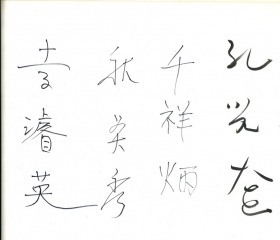 孔
千祥炳
秋英秀
李濬英